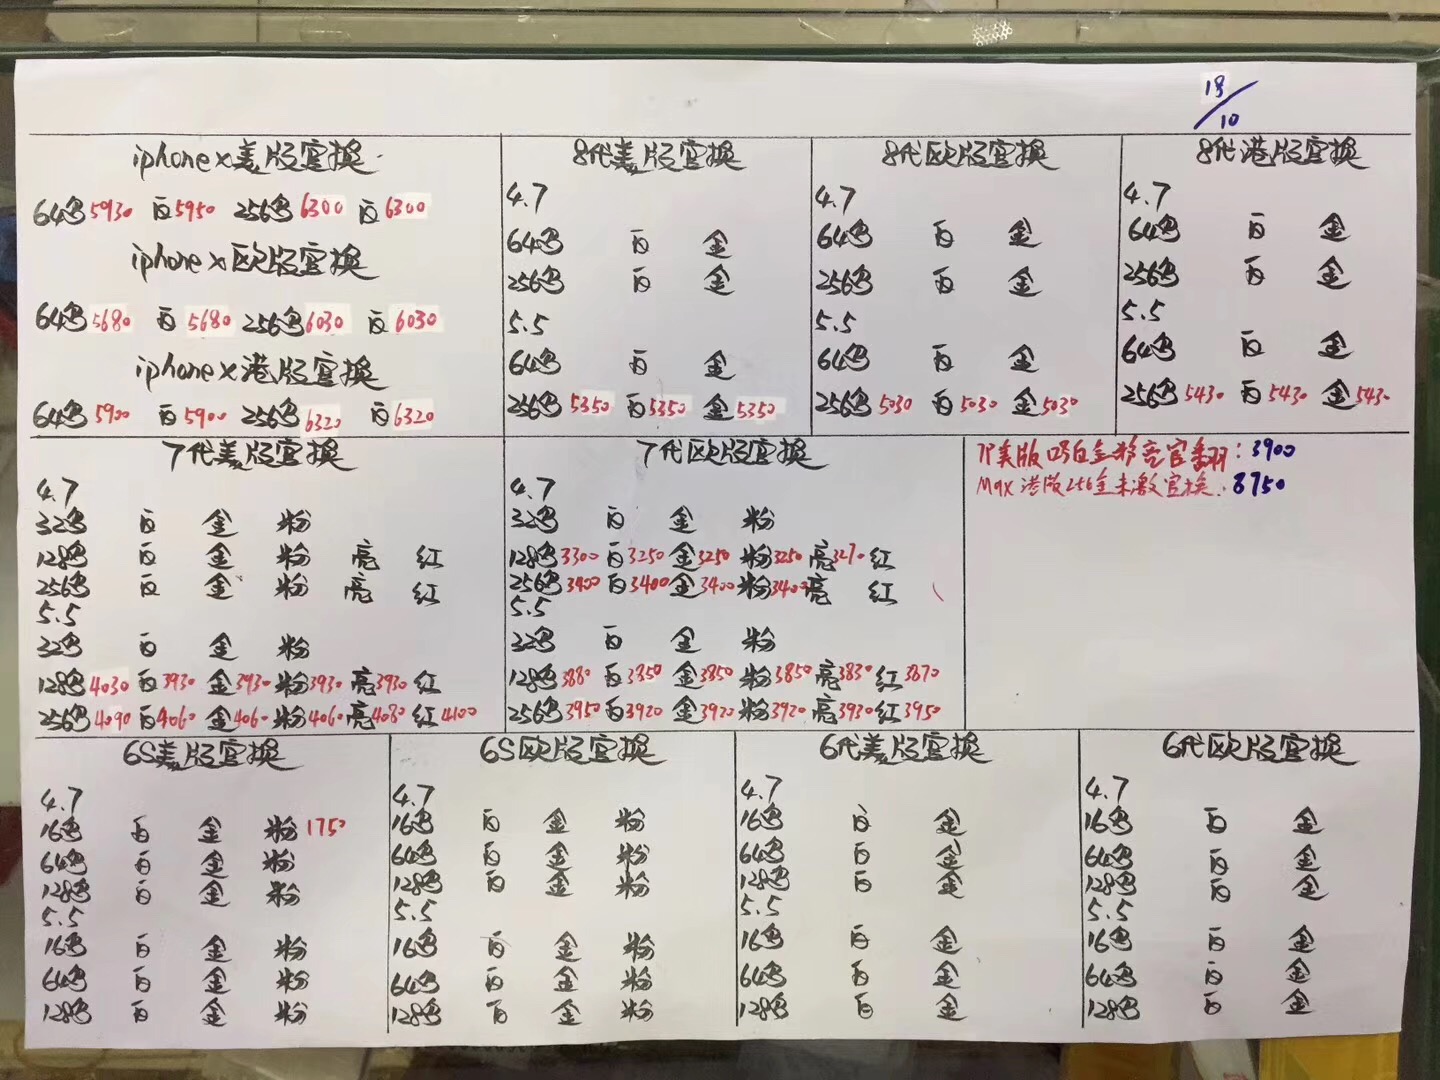 18/10
iphone x美版官换
64黑5930 白5950 256黑6300 白6300
iphone x欧版官换
64黑5680 白5680 256黑6030 白6030
iphone x港版官换
64黑5900 白5900 256黑6320 白6320
8代美版官换
4.7
64黑 白 金
256黑 白 金
5.5
64黑 白 金
256黑5350 白5350 金5350
8代欧版官换
4.7
64黑 白 金
256黑 白 金
5.5
64黑 白 金
256黑5030 白5030 金5030
8代港版官换
4.7
64黑 白 金
256黑 白 金
5.5
64黑 白 金
256黑5430 白5430 金5430
7代美版官换
4.7
32黑 白 金 粉
128黑 白 金 粉 亮 红
256黑 白 金 粉 亮 红
5.5
32黑 白 金 粉
128黑4030 白3930 金3930 粉3930 亮3930 红
256黑4090 白4060 金4060 粉4060 亮4080 红4100
7代欧版官换
4.7
32黑 白 金 粉
128黑3300 白3250 金3250 粉3250 亮3270 红
256黑3400 白3400 金3400 粉3400 亮 红
5.5
32黑 白 金 粉
128黑3880 白3850 金3850 粉3850 亮3830 红3870
256黑3950 白3920 金3920 粉3920 亮3930 红3950
7P美版 白金粉亮官翻:3900
Max港版256金未激官换:8750
6S美版官换
4.7
16黑 白 金 粉1750
64黑 白 金 粉
128黑 白 金 粉
5.5
16黑 白 金 粉
64黑 白 金 粉
128黑 白 金 粉
6S欧版官换
4.7
16黑 白 金 粉
64黑 白 金 粉
128黑 白 金 粉
5.5
16黑 白 金 粉
64黑 白 金 粉
128黑 白 金 粉
6代美版官换
4.7
16黑 白 金
64黑 白 金
128黑 白 金
5.5
16黑 白 金
64黑 白 金
128黑 白 金
6代欧版官换
4.7
16黑 白 金
64黑 白 金
128黑 白 金
5.5
16黑 白 金
64黑 白 金
128黑 白 金